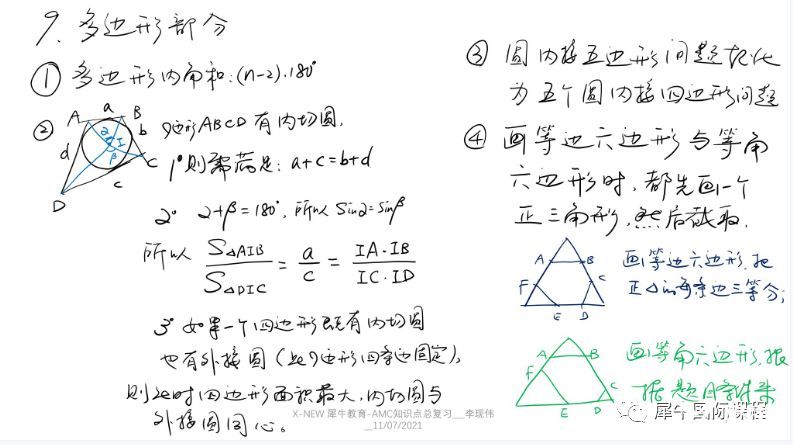 9. 多边形部分
① 多边形内角和:(n-2)·180°
②
A
a
B
b
C
c
D
d
α
I
β
四边形ABCD有内切圆,
1°则需满足: a+c=b+d
2° α+β=180°, 所以 sinα=sinβ
所以 S△AIB / S△DIC = a / c = IA·IB / IC·ID
3° 如果一个四边形既有内切圆
也有外接圆(此四边形四条边固定),
则此时四边形面积最大,内切圆与
外接圆同心。
③ 圆内接五边形问题转化
为五个圆内接四边形问题
④ 画等边六边形与等角
六边形时,都先画一个
正三角形,然后截取.
A
B
C
D
E
F
画等边六边形,把
正△的每条边三等分;
A
B
C
D
E
F
画等角六边形,根
据题目条件来
X-NEW 犀牛教育-AMC知识点总复习__李现伟
__11/07/2021
犀牛国际课程